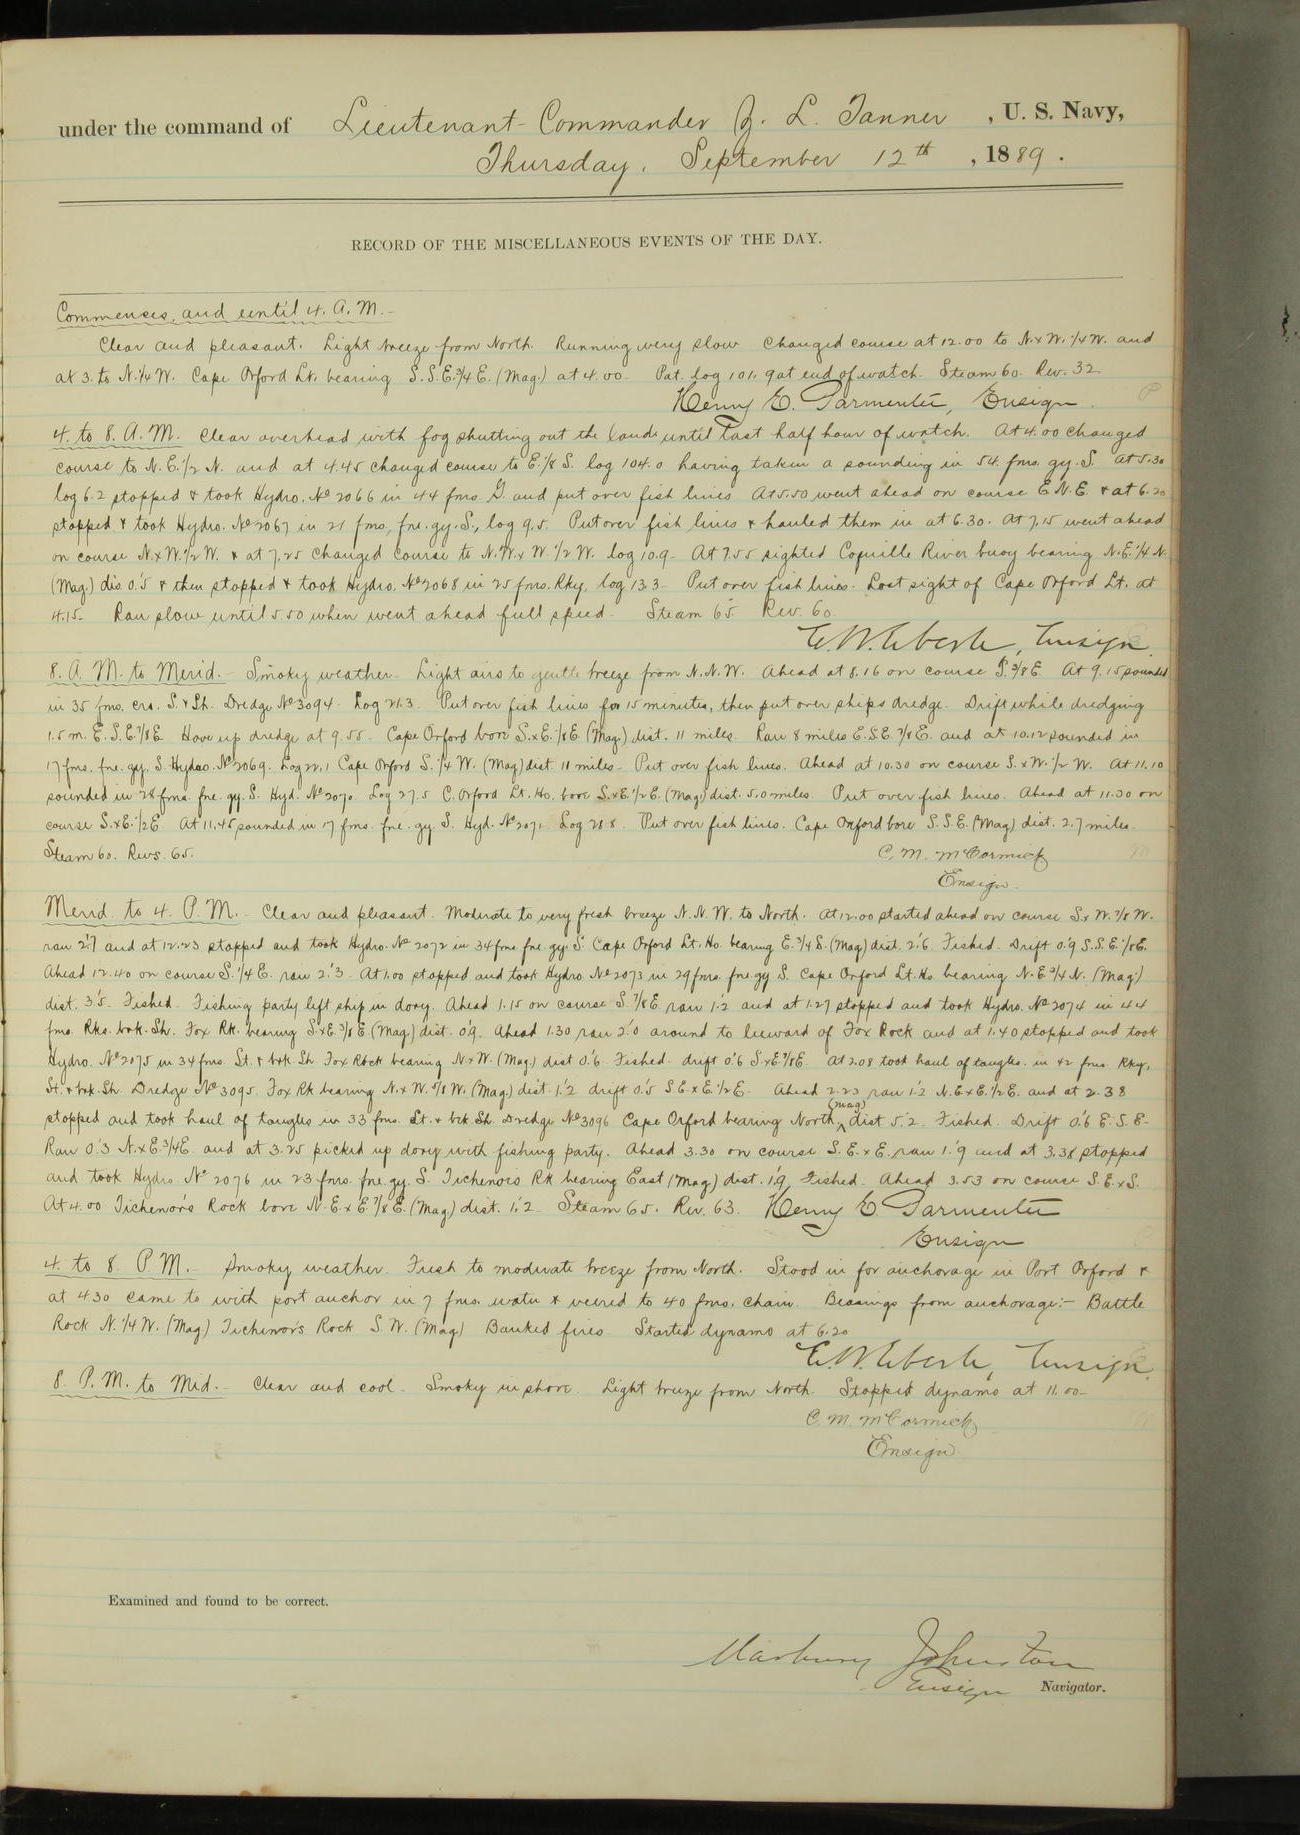 under the command of Lieutenant-Commander Z. L. Tanner , U. S. Navy,
Thursday, September 12th , 1889.
RECORD OF THE MISCELLANEOUS EVENTS OF THE DAY.
Commences, and until 4. A. M.-
Clear and pleasant. Light breeze from North. Running very slow Changed course at 12.00 to N.xW. 1/4 W. and
at 3. to N.1/4 W. Cape Orford Lt. bearing S.S.E.3/4 E. (Mag.) at 4.00. Pat. log 101.9 at end of watch. Steam 60. Rev. 32.
Henry E. Parmenter, Ensign.
4. to 8. A. M. Clear overhead with fog shutting out the land until last half hour of watch. At 4.00 changed
course to N.E. 1/2 N. and at 4.45 changed course to E. 1/8 S. log 104.0 having taken a sounding in 54. fms. gy. S. At 5.30
log 6.2 stopped & took Hydro. No 2066 in 44 fms. G. and put over fish lines At 5.50 went ahead on course E.N.E. & at 6.20
stopped & took Hydro. No 2067 in 21 fms, fne. gy. S., log 9.5. Put over fish lines & hauled them in at 6.30. At 7.15 went ahead
on course N.xW.1/2 W. & at 7.25 changed course to N.W.x W. 1/2 W. log 10.9- At 7.55 sighted Coquille River buoy bearing N.E. 1/4 N.
(Mag.) dis 0.'5 & then stopped & took Hydro. No 2068 in 25 fms. Rky, log 13.3- Put over fish lines. Lost sight of Cape Orford Lt. at
4.15- Ran slow until 5.50 when went ahead full speed. Steam 65 Rev. 60.
E. W. Eberle, Ensign.
8. A. M. to Merid.- Smoky weather- Light airs to gentle breeze from N.N.W. Ahead at 8.16 on course S. 3/8 E At 9.15 sounded
in 35 fms. crs. S. & Sh. Dredge No 3094. Log 21.3. Put over fish lines for 15 minutes, then put over ships dredge. Drift while dredging
1.5 m. E.S.E. 7/8 E. Hove up dredge at 9.55- Cape Orford bore S.xE. 1/8 E. (Mag.) dist. 11 miles. Ran 8 miles E.S.E. 7/8 E. and at 10.12 sounded in
17 fms. fne. gy. S. Hydro. No 2069. Log 22.1 Cape Orford S. 1/4 W. (Mag) dist. 11 miles- Put over fish lines. Ahead at 10.30 on course S.xW. 1/2 W. At 11.10
sounded in 28 fms. fne. gy. S. Hyd. No 2070 Log 27.5 C. Orford Lt. Ho. bore S.xE. 1/2 E. (Mag.) dist. 5.0 miles. Put over fish lines. Ahead at 11.30 on
course S.xE. 1/2 E At 11.45 sounded in 17 fms. fne. gy. S. Hyd. No 2071. Log 28.8. Put over fish lines. Cape Orford bore S.S.E. (Mag) dist. 2.7 miles.
Steam 60. Revs. 65. C. M. McCormick
Ensign.
Merid. to 4. P. M.- Clear and pleasant. Moderate to very fresh breeze N.N.W. to North. At 12.00 started ahead on course S.x W. 7/8 W.
ran 2.'7 and at 12.23 stopped and took Hydro. No 2072 in 34 fms fne. gy. S. Cape Orford Lt. Ho. bearing E. 3/4 S. (Mag) dist. 2.'6. Fished. Drift 0.'9 S.S.E. 1/8 E.
Ahead 12.40 on course S. 1/4 E. ran 2.'3. At 1.00 stopped and took Hydro. No 2073 in 29 fms. fne. gy S. Cape Orford Lt. Ho. bearing N.E. 3/4 N. (Mag.)
dist. 3.'5. Fished. Fishing party left ship in dory. Ahead 1.15 on course S. 7/8 E ran 1.'2 and at 1.27 stopped and took Hydro. No 2074 in 44
fms. Rks. brk. Sh. Fox Rk. bearing S.xE. 3/8 E (Mag.) dist. 0.'9. Ahead 1.30 ran 2.'0 around to leeward of Fox Rock and at 1.40 stopped and took
Hydro. No 2075 in 34 fms. St. & brk Sh Fox Rock bearing N.x W. (Mag.) dist 0.'6. Fished. drift 0.'6 S.xE. 7/8 E. At 2.08 took haul of tangles. in 42 fms. Rky.
St. & brk. Sh. Dredge No 3095. Fox Rk bearing N.x W. 5/8 W. (Mag.) dist. 1.'2 drift 0.'5 S.E.x E. 1/2 E. Ahead 2.23 ran 1.'2 N.E.xE. 1/2 E. and at 2.38
stopped and took haul of tangles in 33 fms. St. & brk Sh. Dredge No 3096 Cape Orford bearing North (Mag) dist 5.'2. Fished. Drift 0.'6 E.S.E.
Ran 0.'3 N.xE. 3/4 E. and at 3.25 picked up dory with fishing party. Ahead 3.30 on course S.E.x E. ran 1.'9 and at 3.38 stopped
and took Hydro. No 2076 in 23 fms. fne. gy. S. Tichenors Rk bearing East (Mag) dist. 1.'9. Fished. Ahead 3.53 on course S.E.xS.
At 4.00 Tichenor's Rock bore N.E.x E 7/8 E. (Mag) dist. 1.'2- Steam 65. Rev. 63. Henry E. Parmenter
Ensign
4. to 8. P. M.- Smoky weather. Fresh to moderate breeze from North. Stood in for anchorage in Port Orford &
at 4.30 came to with port anchor in 7 fms. water & veered to 40 fms. chain. Bearings from anchorage:- Battle
Rock N. 1/4 W. (Mag) Tichenor's Rock S.W. (Mag) Banked fires Started dynamo at 6.20
E. W. Eberle, Ensign.
8. P. M. to Mid.- Clear and cool. Smoky in shore. Light breeze from North. Stopped dynamo at 11.00-
C. M. McCormick
Ensign
Examined and found to be correct.
Marbury Johnston
Ensign Navigator.